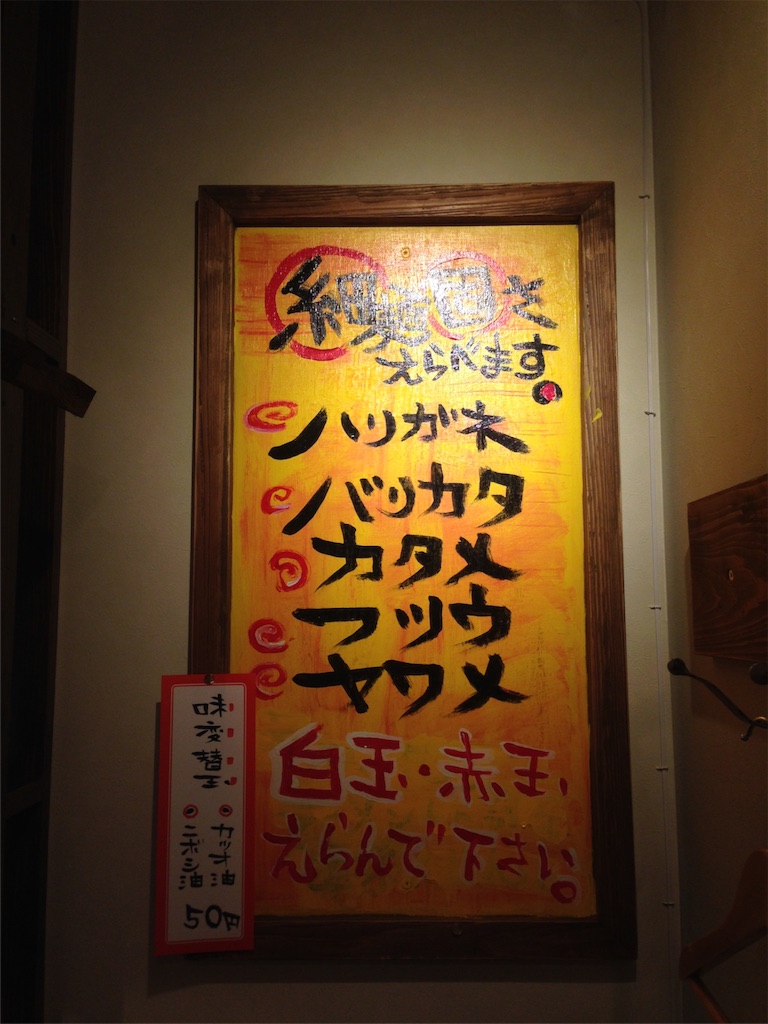 細麺固さ
えらべます。
ハリガネ
バリカタ
カタメ
フツウ
ヤワメ
白玉・赤玉、
えらんで下さい。
味変替玉
カツオ油
ニボシ油
50円